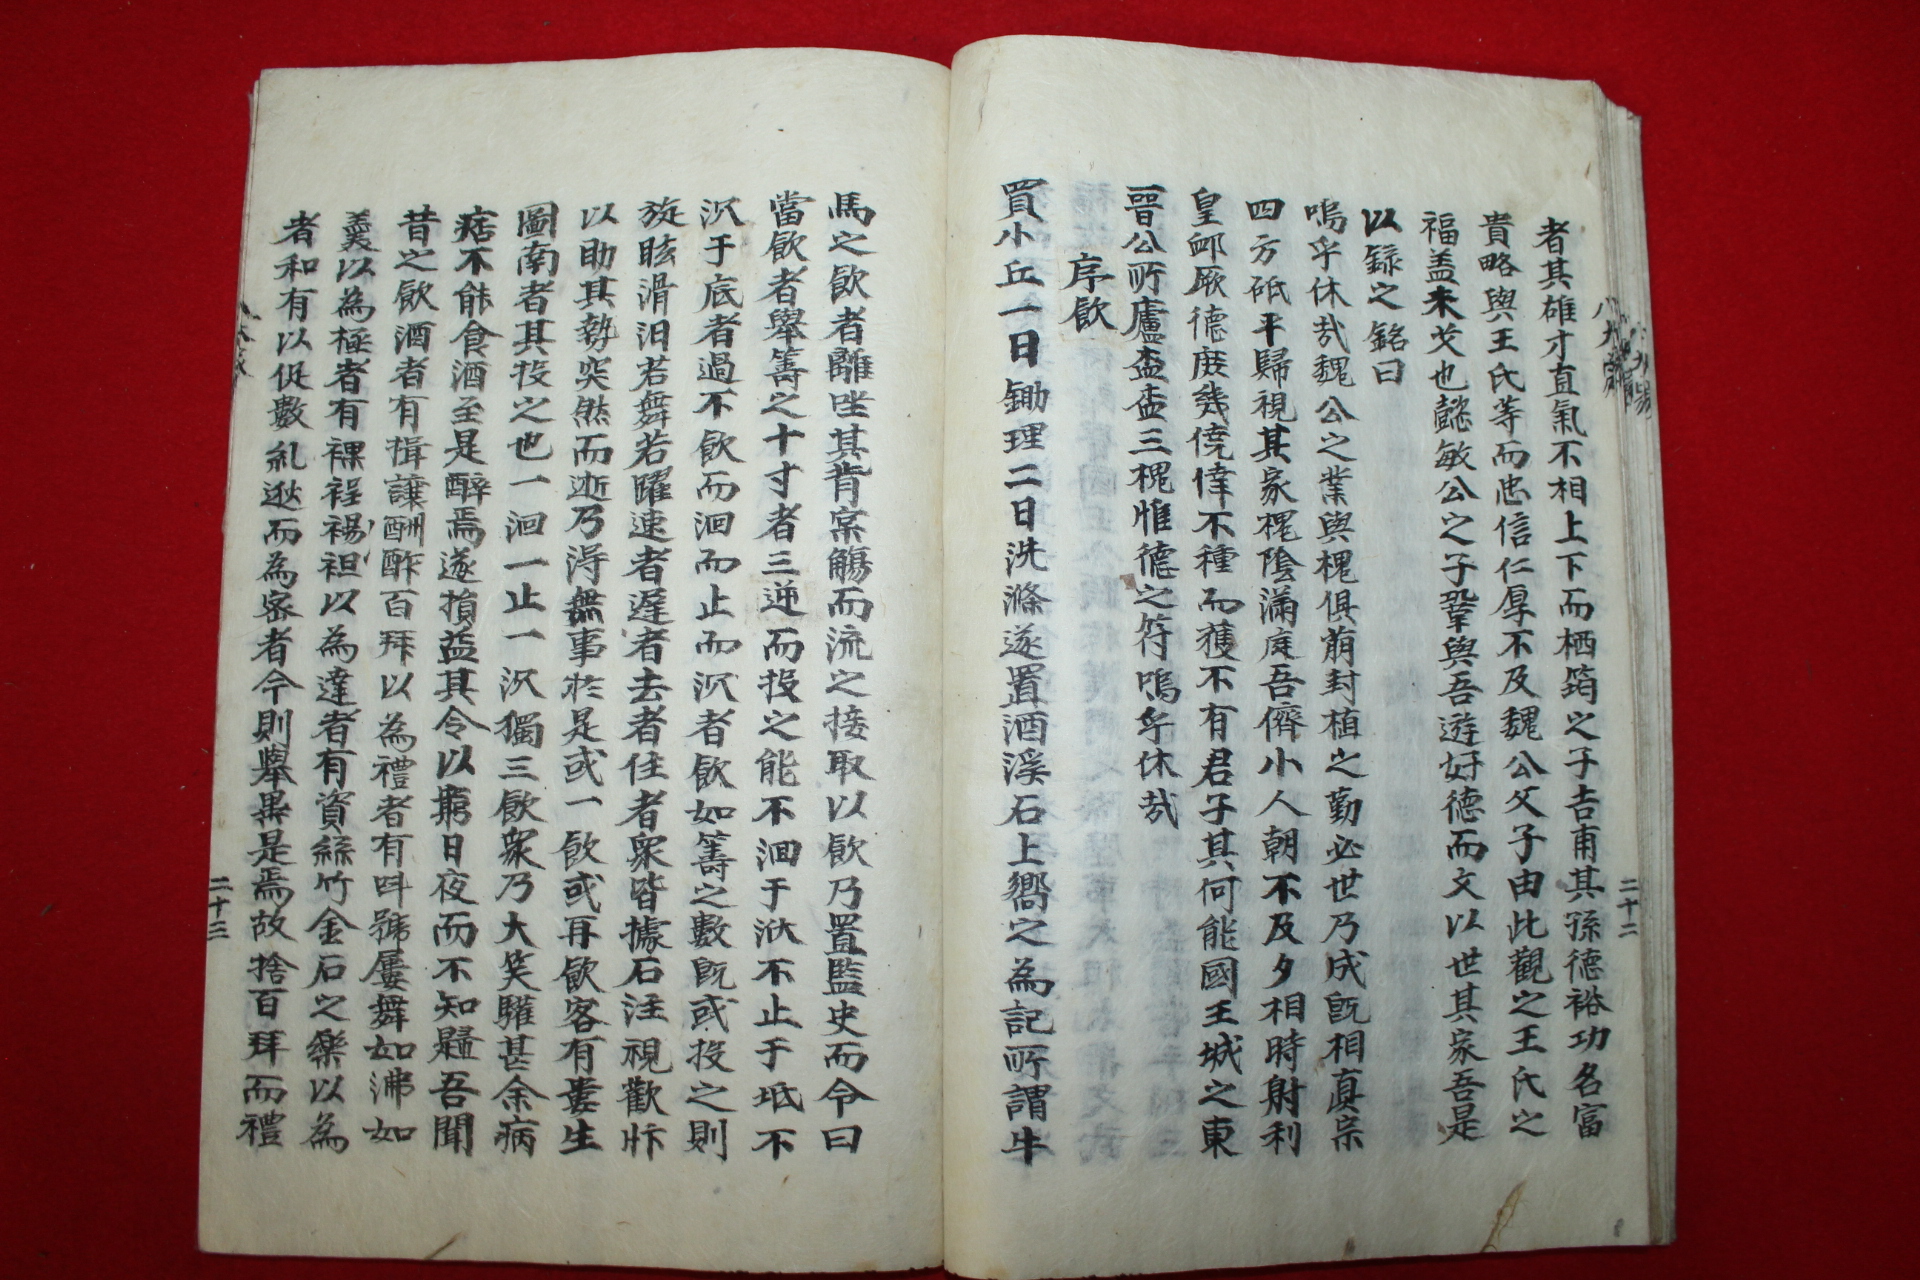 者其雄才直氣不相上下而栖筠之子吉甫其孫德裕功名富
貴略與王氏等而忠信仁厚不及魏公父子由此觀之王氏之
福盖未艾也懿敏公之子鞏與吾遊好德而文以世其家吾是
以録之銘曰
嗚乎休哉魏公之業與槐俱萠封植之勤必世乃成旣相真宗
四方砥平歸視其家槐陰滿庭吾儕小人朝不及夕相時射利
皇卹厥德庶幾僥倖不種而獲不有君子其何能國王城之東
晉公所廬盃盃三槐惟德之符嗚乎休哉
序飮
買小丘一日鋤理二日洗滌遂置酒溪石上嚮之為記所謂牛
馬之飮者離坐其背宲觴而流之接取以飮乃置監史而令曰
當飮者擧籌之十寸者三逆而投之能不洄于洑不止于坻不
沉于底者過不飮而洄而止而沉者飮如籌之數旣或投之則
旋眩滑汨若舞若躍速者遲者去者住者衆皆據石注視歡忭
以助其勢突然而逝乃淂無事於是或一飮或再飮客有婁生
圖南者其投之也一洄一止一沉獨三飮衆乃大笑驩甚余病
痞不能食酒至是醉焉遂損益其令以窮日夜而不知歸吾聞
昔之飮酒者有揖讓酬酢百拜以為禮者有呌號屢舞如沸如
羹以為極者有裸裎裼袒以為達者有資絲竹金石之樂以為
者和有以促數糺逖而為密者今則擧異是焉故捨百拜而禮
二十二
二十三